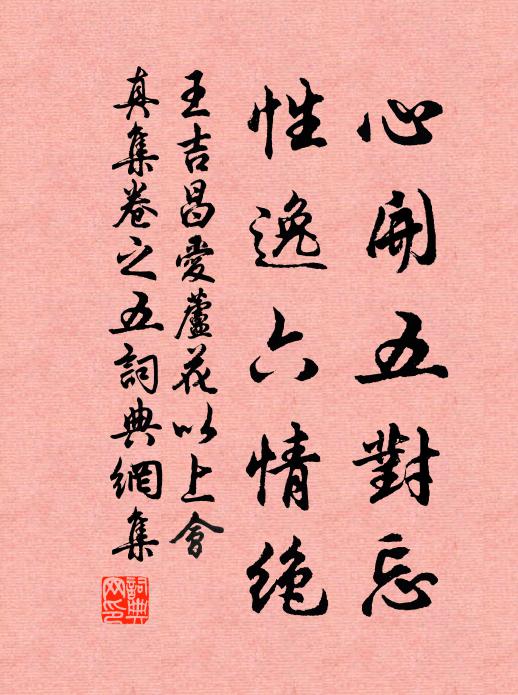 心開五對忘
性逸六情絶
王吉昌愛蘆花以上會
真集卷之五詞典網集
詞典網印